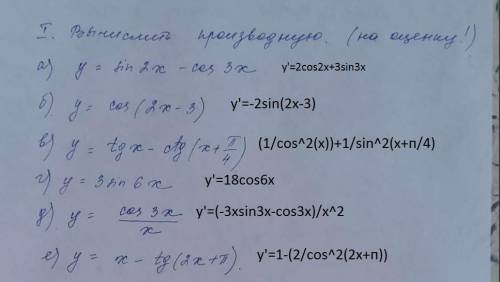 I. Вычислить производную. (на оценку!)
а) y = sin 2x - cos 3x y'=2cos2x+3sin3x
б) y = cos (2x - 3) y'=-2sin(2x-3)
в) y = tg x - ctg (x + π/4) (1/cos^2(x))+1/sin^2(x+п/4)
г) y = 3 sin 6x y'=18cos6x
д) y = cos 3x / x y'=(-3xsin3x-cos3x)/x^2
е) y = x - tg (2x + π). y'=1-(2/cos^2(2x+п))